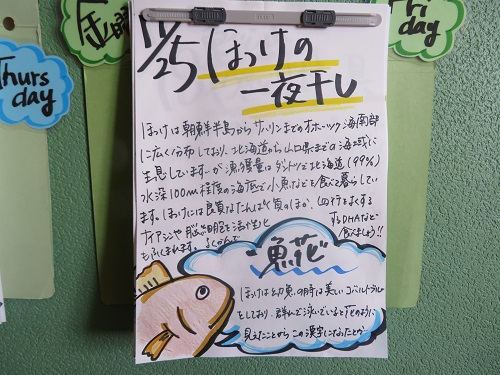 金曜
Thurs
day
Fri
day
11/25
ほっけの
一夜干し
ほっけは朝鮮半島からサハリンまでのオホーツク海南部
に広く分布しており、北海道から山口県までの海域に
生息していますが漁獲量はダントツで北海道(99%)
水深100m程度の海底で小魚などを食べて暮らしてい
ます。ほっけには良質なたんぱく質のほか、血行をよくする
ナイアシンや脳の細胞を活性化するDHAなど
もふくまれます。よくかんで食べましょう!!
魚花
ほっけは幼魚の時は美しいコバルトブルー
をしており、群れで泳いでいると花のように
見えたことからこの漢字になったとか